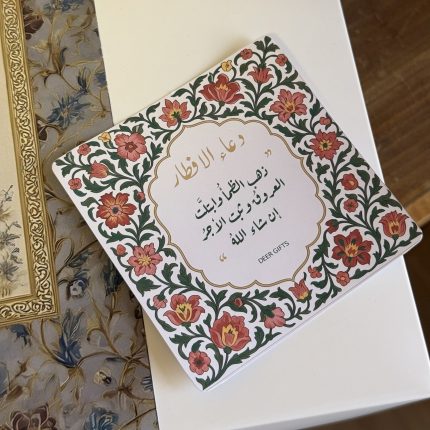 دعاء الافطار
" ذهب الظمأ وابتلت
العروق وثبت الأجر
إن شاء الله "
DEER GIFTS